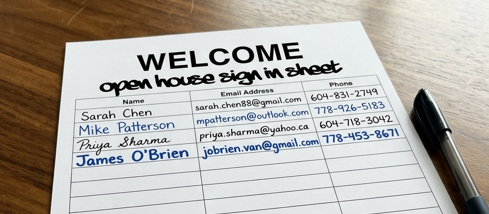 WELCOME
open house sign in sheet
Name Email Address Phone
Sarah Chen sarah.chen88@gmail.com 604-831-2749
Mike Patterson mpatterson@outlook.com 778-926-5183
Priya Sharma priya.sharma@yahoo.ca 604-718-3042
James O'Brien jobrien.van@gmail.com 778-453-8671